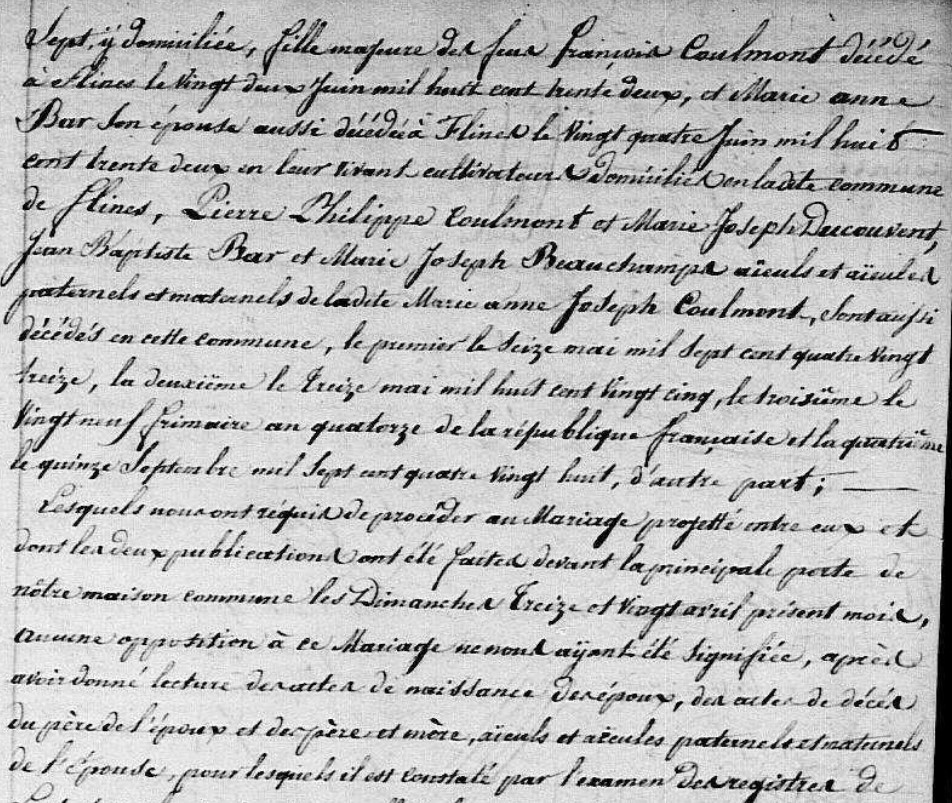 Sept, ÿ domiciliée, fille majeure des feus françois Coulmont décédé
à Flines le vingt deux Juin mil huit cent trente deux, et Marie anne
Bar son épouse aussi décédée à Flines le vingt quatre Juin mil huit
cent trente deux en leur vivant cultivateurs domiciliés en ladite commune
de flines, Pierre Philippe Coulmont et Marie Joseph Ducouvent,
Jean Baptiste Bar et Marie Joseph Beauchamps aïeuls et aïeules
paternels et maternels de ladite Marie anne Joseph Coulmont, sont aussi
décédés en cette commune, le premier le seize mai mil sept cent quatre vingt
treize, la deuxième le treize mai mil huit cent vingt cinq, le troisième le
vingt neuf frimaire an quatorze de la république française et la quatrième
le quinze Septembre mil sept cent quatre vingt huit, d'autre part;
Lesquels nous ont réquis de procéder au Mariage projetté entre eux et
dont les deux publications ont été faites devant la principale porte de
nôtre maison commune les Dimanches treize et vingt avril présent mois,
aucune opposition à ce Mariage ne nous aÿant été signifiée, après
avoir donné lecture des actes de naissance des époux, des actes de décès
du père de l'époux et des père et mère, aïeuls et aïeules paternels et maternels
de l'épouse, pour lesquels il est constaté par l'examen des registres de